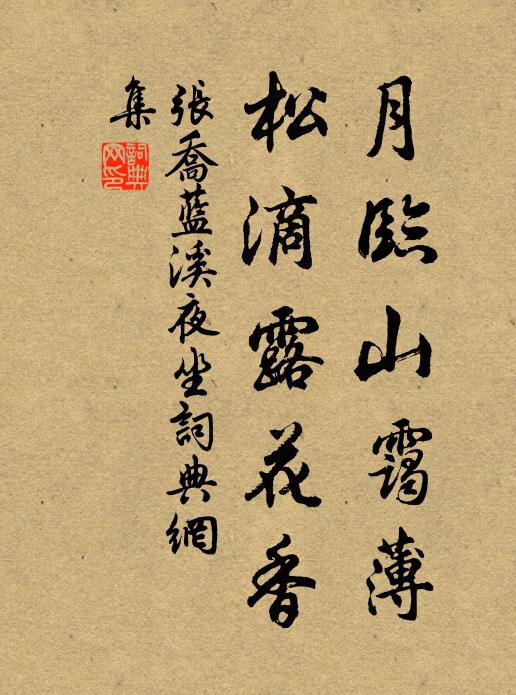 月臨山靄薄
松滴露花香
張喬藍溪夜坐詞典網
集
詞典
网印